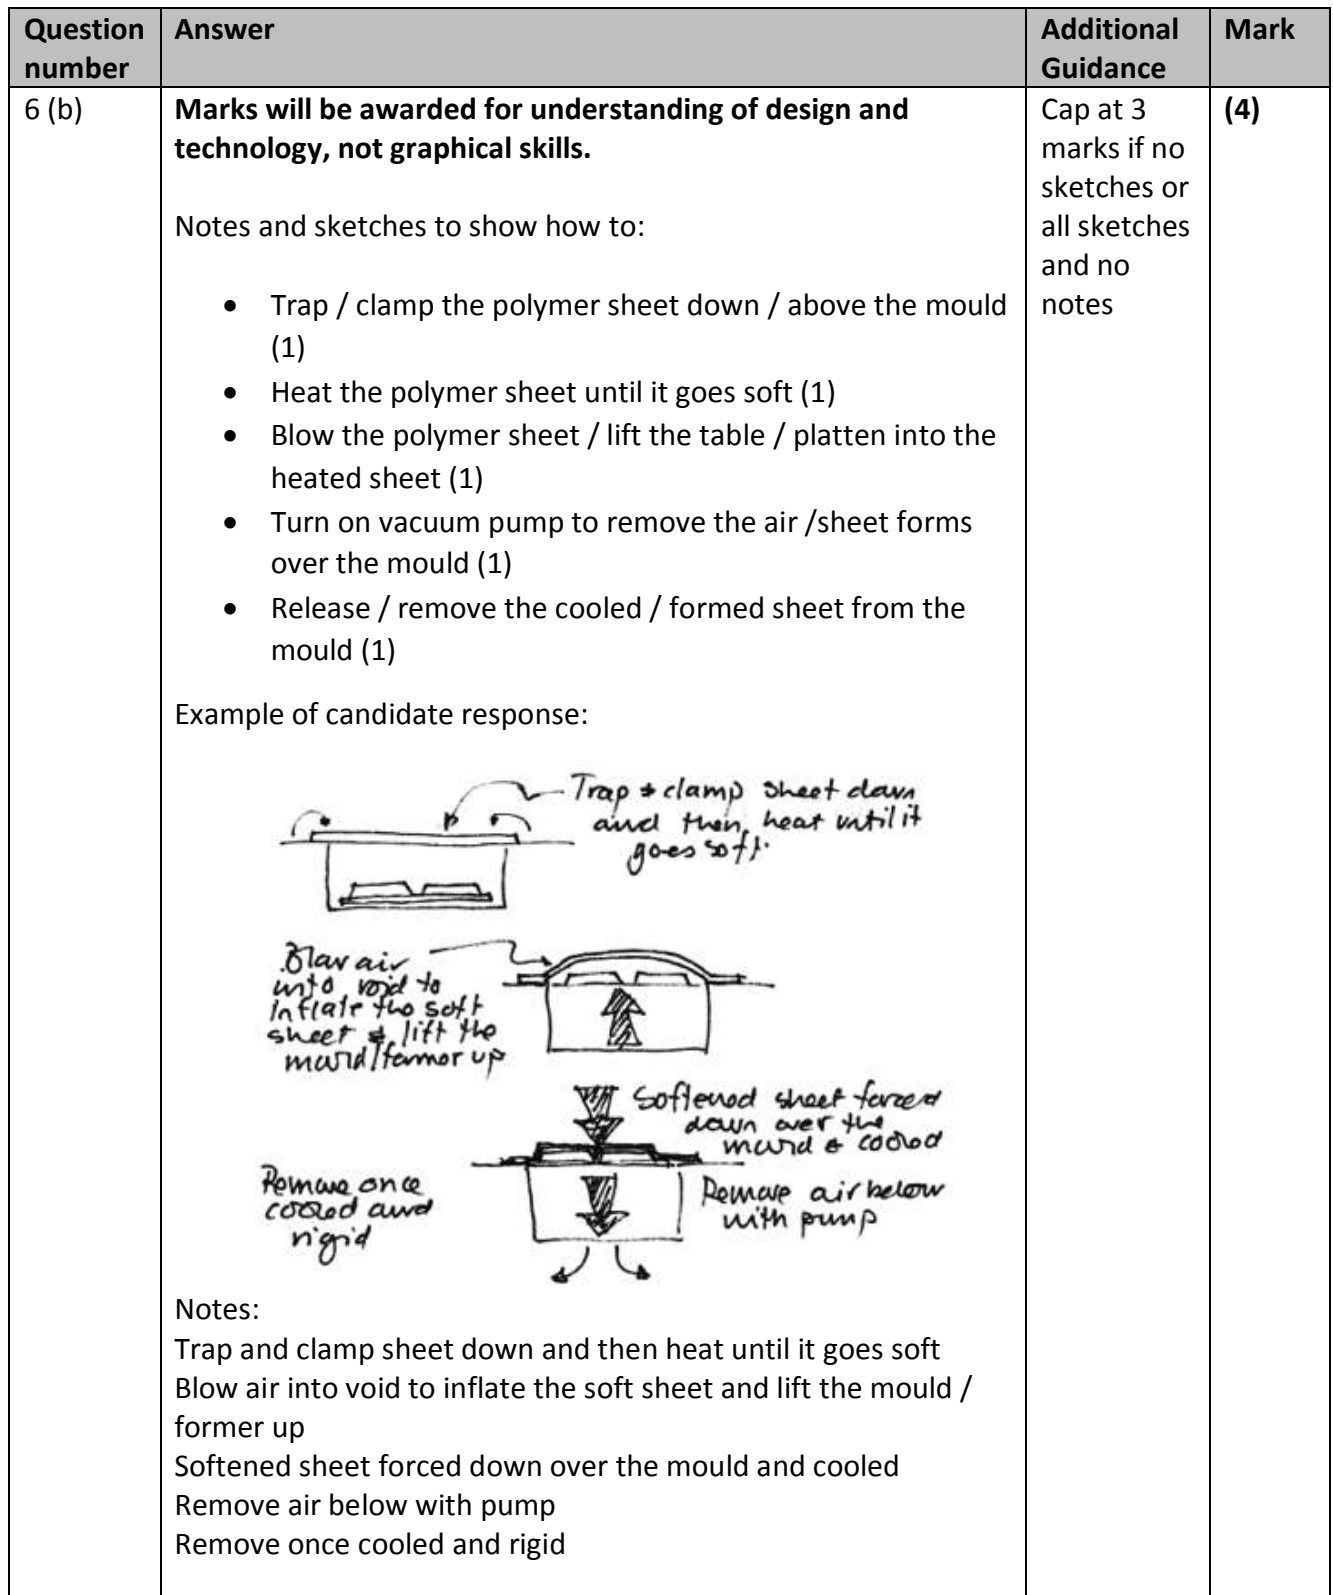 Question number
Answer
Additional Guidance
Mark
6 (b)
Marks will be awarded for understanding of design and
technology, not graphical skills.
Cap at 3
marks if no
sketches or
all sketches
and no
notes
(4)
Notes and sketches to show how to:
• Trap / clamp the polymer sheet down / above the mould
(1)
• Heat the polymer sheet until it goes soft (1)
• Blow the polymer sheet / lift the table / platten into the
heated sheet (1)
• Turn on vacuum pump to remove the air /sheet forms
over the mould (1)
• Release / remove the cooled / formed sheet from the
mould (1)
Example of candidate response:
Trap & clamp sheet down
and then heat until it
goes soft.
Blow air
into void to
inflate the soft
sheet & lift the
mould/former up
Softened sheet forced
down over the
mould & cooled
Remove once
cooled and
rigid
Remove air below
with pump
Notes:
Trap and clamp sheet down and then heat until it goes soft
Blow air into void to inflate the soft sheet and lift the mould /
former up
Softened sheet forced down over the mould and cooled
Remove air below with pump
Remove once cooled and rigid